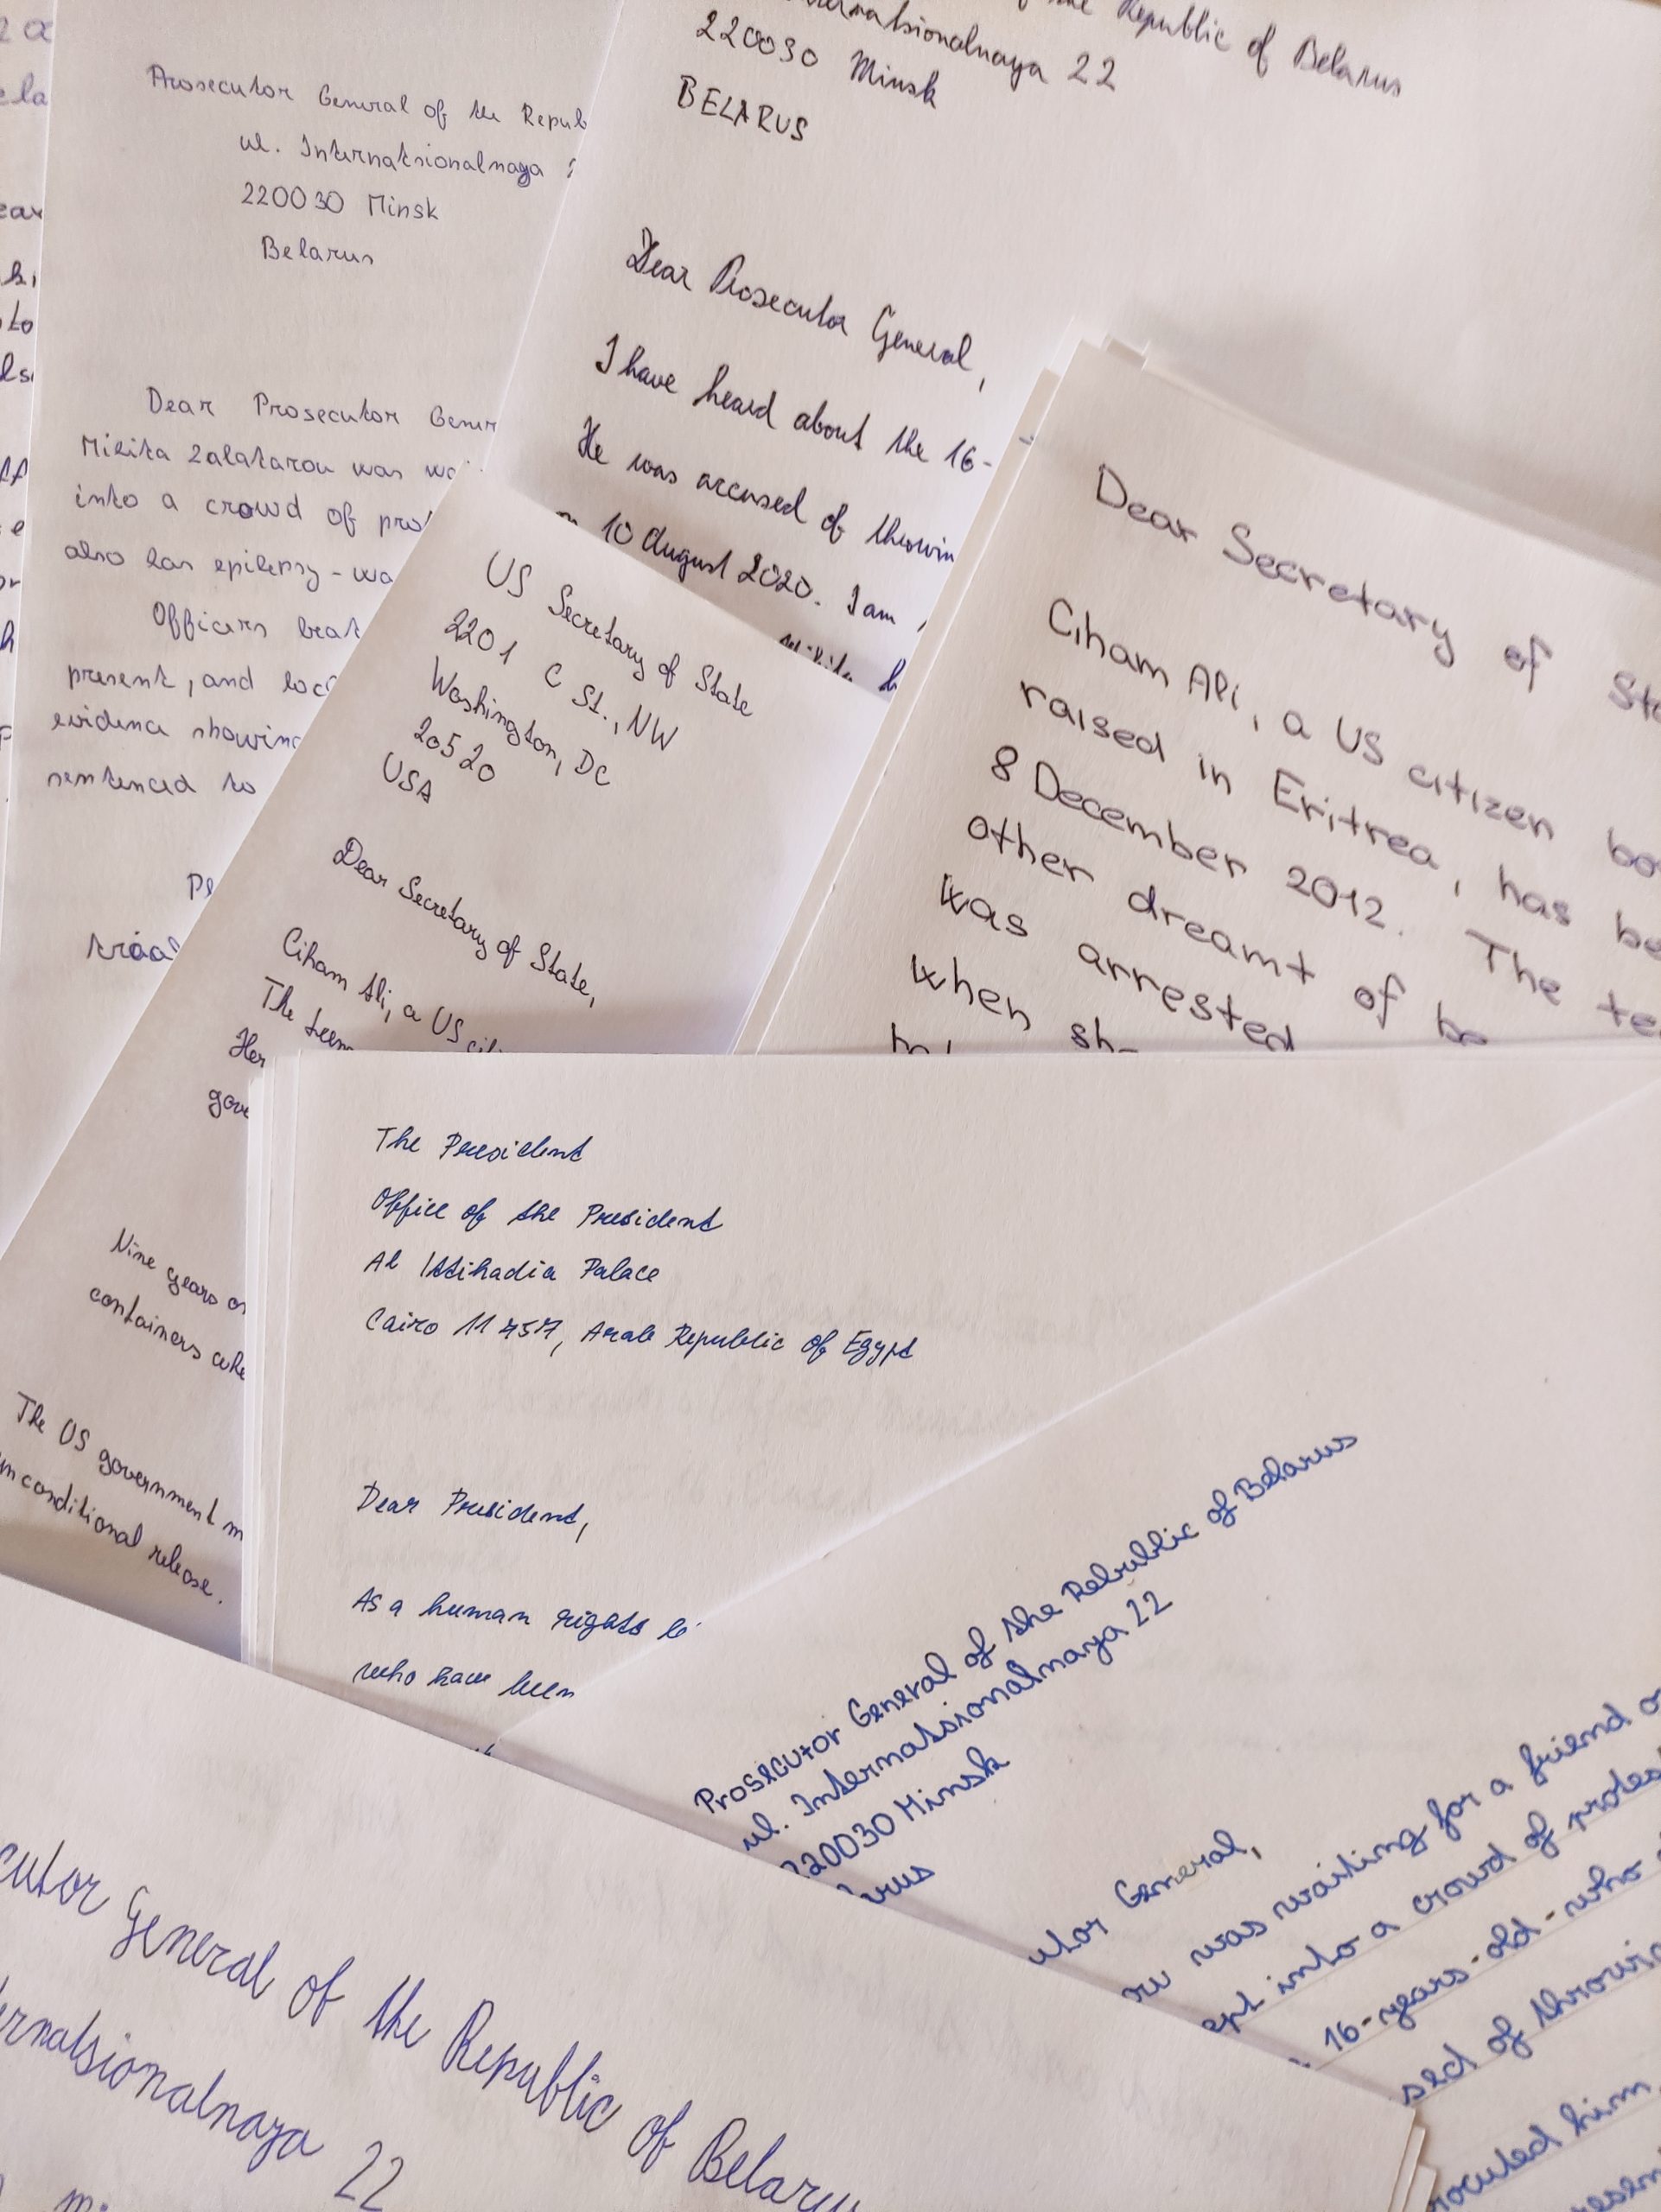 Prosecutor General of the Repub
ul. Internatsionalnaya
220030 Minsk
Belarus
Dear Prosecutor Gener
Mikita Zalatarou was wai
into a crowd of prot
also has epilepsy - wa
Officers beat
present, and loc
evidence showing
sentenced to
Pl
the Republic of Belarus
ernatsionalnaya 22
220030 Minsk
BELARUS
Dear Prosecutor General,
I have heard about the 16-
He was accused of throwin
10 August 2020. I am
US Secretary of State
2201 C St., NW
Washington, DC
20520
USA
Dear Secretary of State,
Ciham Ali, a US citi
The teen
Her
gove
Nine years on
containers whe
The US government m
unconditional release.
Dear Secretary of Sta
Ciham Ali, a US citizen bo
raised in Eritrea, has be
8 December 2012. The te
other dreamt of be
was arrested
when sh
The President
Office of the President
Al Ittihadia Palace
Cairo 11457, Arab Republic of Egypt
Dear President,
As a human rights
who have been
Prosecutor General of the Rebublic of Belarus
ul. Internatsionalnaya 22
220030 Minsk
arus
utor General,
ou was waiting for a friend
ept into a crowd of protes
16-years-old - who
sed of throwin
rocuted him
resen
cutor General of the Republic of Belaru
ernatsionalnaya 22